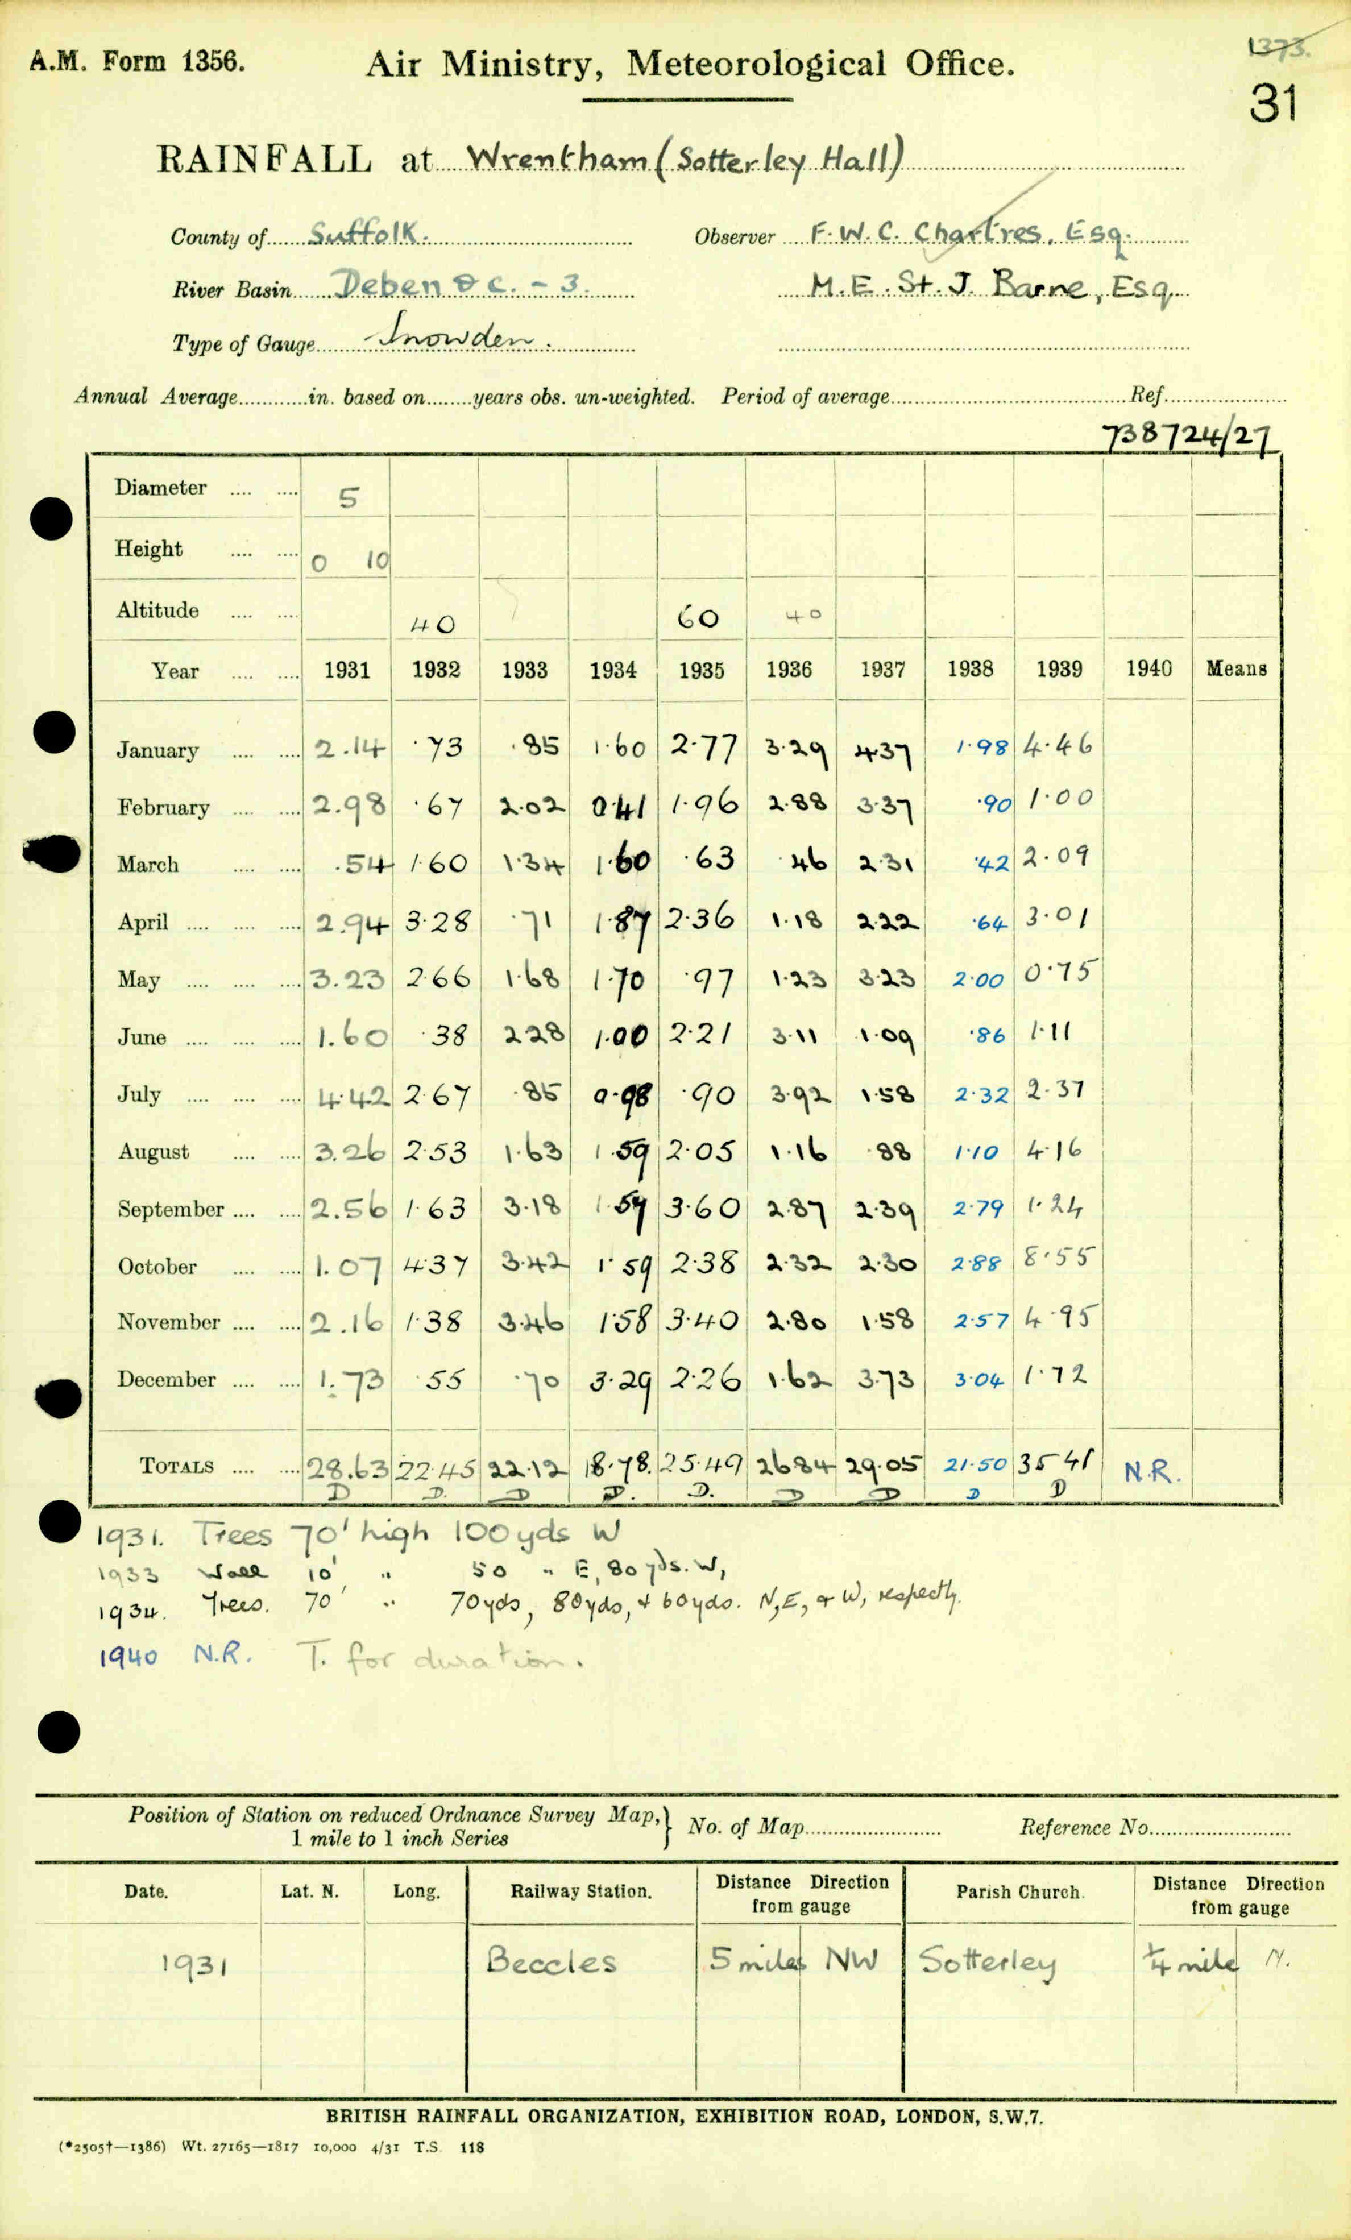 A.M. Form 1356.
Air Ministry, Meteorological Office.
1373.
31
RAINFALL at Wrentham (Sotterley Hall)
County of Suffolk. Observer F. W. C. Chartres, Esq.
River Basin Deben & c. - 3. M. E. St. J. Barne, Esq.
Type of Gauge Snowden.
Annual Average in. based on years obs. un-weighted. Period of average Ref.
738724/27
Diameter 5
Height 0 10
Altitude 40 60 40
Year 1931 1932 1933 1934 1935 1936 1937 1938 1939 1940 Means
January 2.14 ·73 ·85 1·60 2·77 3·29 4·37 1·98 4·46
February 2.98 ·67 2·02 0·41 1·96 2·88 3·37 ·90 1·00
March .54 1·60 1·34 1·60 ·63 ·46 2·31 ·42 2·09
April 2.94 3·28 ·71 1·87 2·36 1·18 2·22 ·64 3·01
May 3.23 2·66 1·68 1·70 ·97 1·23 3·23 2·00 0·75
June 1.60 ·38 2·28 1·00 2·21 3·11 1·09 ·86 1·11
July 4·42 2·67 ·85 0·98 ·90 3·92 1·58 2·32 2·37
August 3.26 2·53 1·63 1·59 2·05 1·16 ·88 1·10 4·16
September 2.56 1·63 3·18 1·57 3·60 2·87 2·39 2·79 1·24
October 1.07 4·37 3·42 1·59 2·38 2·32 2·30 2·88 8·55
November 2.16 1·38 3·46 1·58 3·40 2·80 1·58 2·57 4·95
December 1.73 ·55 ·70 3·29 2·26 1·62 3·73 3·04 1·72
TOTALS 28.63 22·45 22·12 18·78. 25·49 26·84 29·05 21·50 35·41 N.R.
D D. D D. D. D D D D
1931. Trees 70' high 100yds W
1933 Wall 10' " 50 " E, 80 yds. W,
1934. Trees. 70' " 70yds, 80yds, & 60yds. N, E, & W, respectly.
1940 N.R. T. for duration.
Position of Station on reduced Ordnance Survey Map,} No. of Map Reference No.
1 mile to 1 inch Series
Date. Lat. N. Long. Railway Station. Distance Direction from gauge Parish Church. Distance Direction from gauge
1931 Beccles 5 miles NW Sotterley ¼ mile N.
BRITISH RAINFALL ORGANIZATION, EXHIBITION ROAD, LONDON, S.W.7.
(*2505†—1386) Wt. 27165—1817 10,000 4/31 T.S. 118